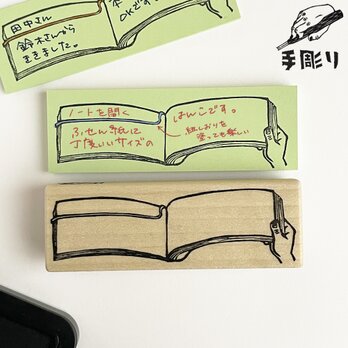 田中さん
鈴木さんから
ききました。
OKです
手彫り
ノートを開く
ふせん紙に
丁度いいサイズの
はんこです。
紐しおりを
塗っても楽しい